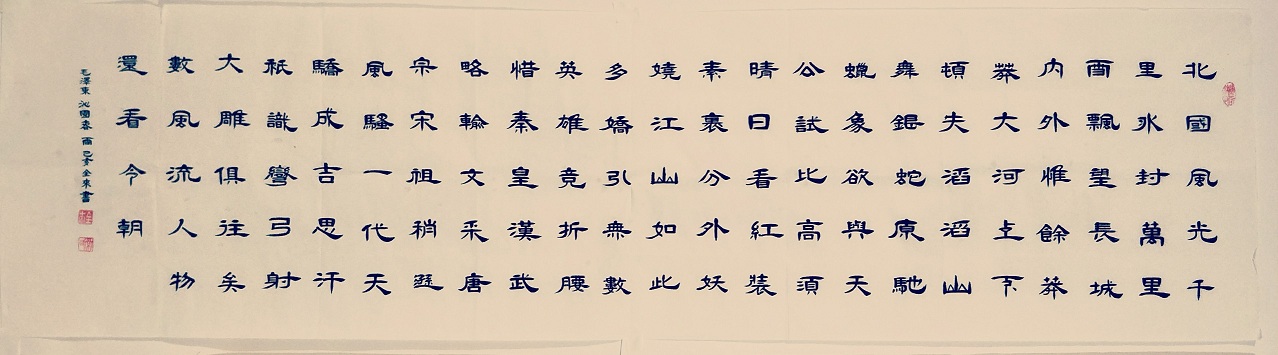 北國風光千
里氷封萬里
雪飄望長城
内外惟餘莽
莽大河上下
頓失滔滔山
舞銀蛇原馳
蠟象欲與天
公試比高須
晴日看紅裝
素裹分外妖
嬈江山如此
多嬌引無數
英雄竞折腰
惜秦皇漢武
略輸文采唐
宗宋祖稍遜
風騷一代天
驕成吉思汗
祇識彎弓射
大雕俱往矣
數風流人物
還看今朝
毛澤東 沁園春 雪 己亥金東書